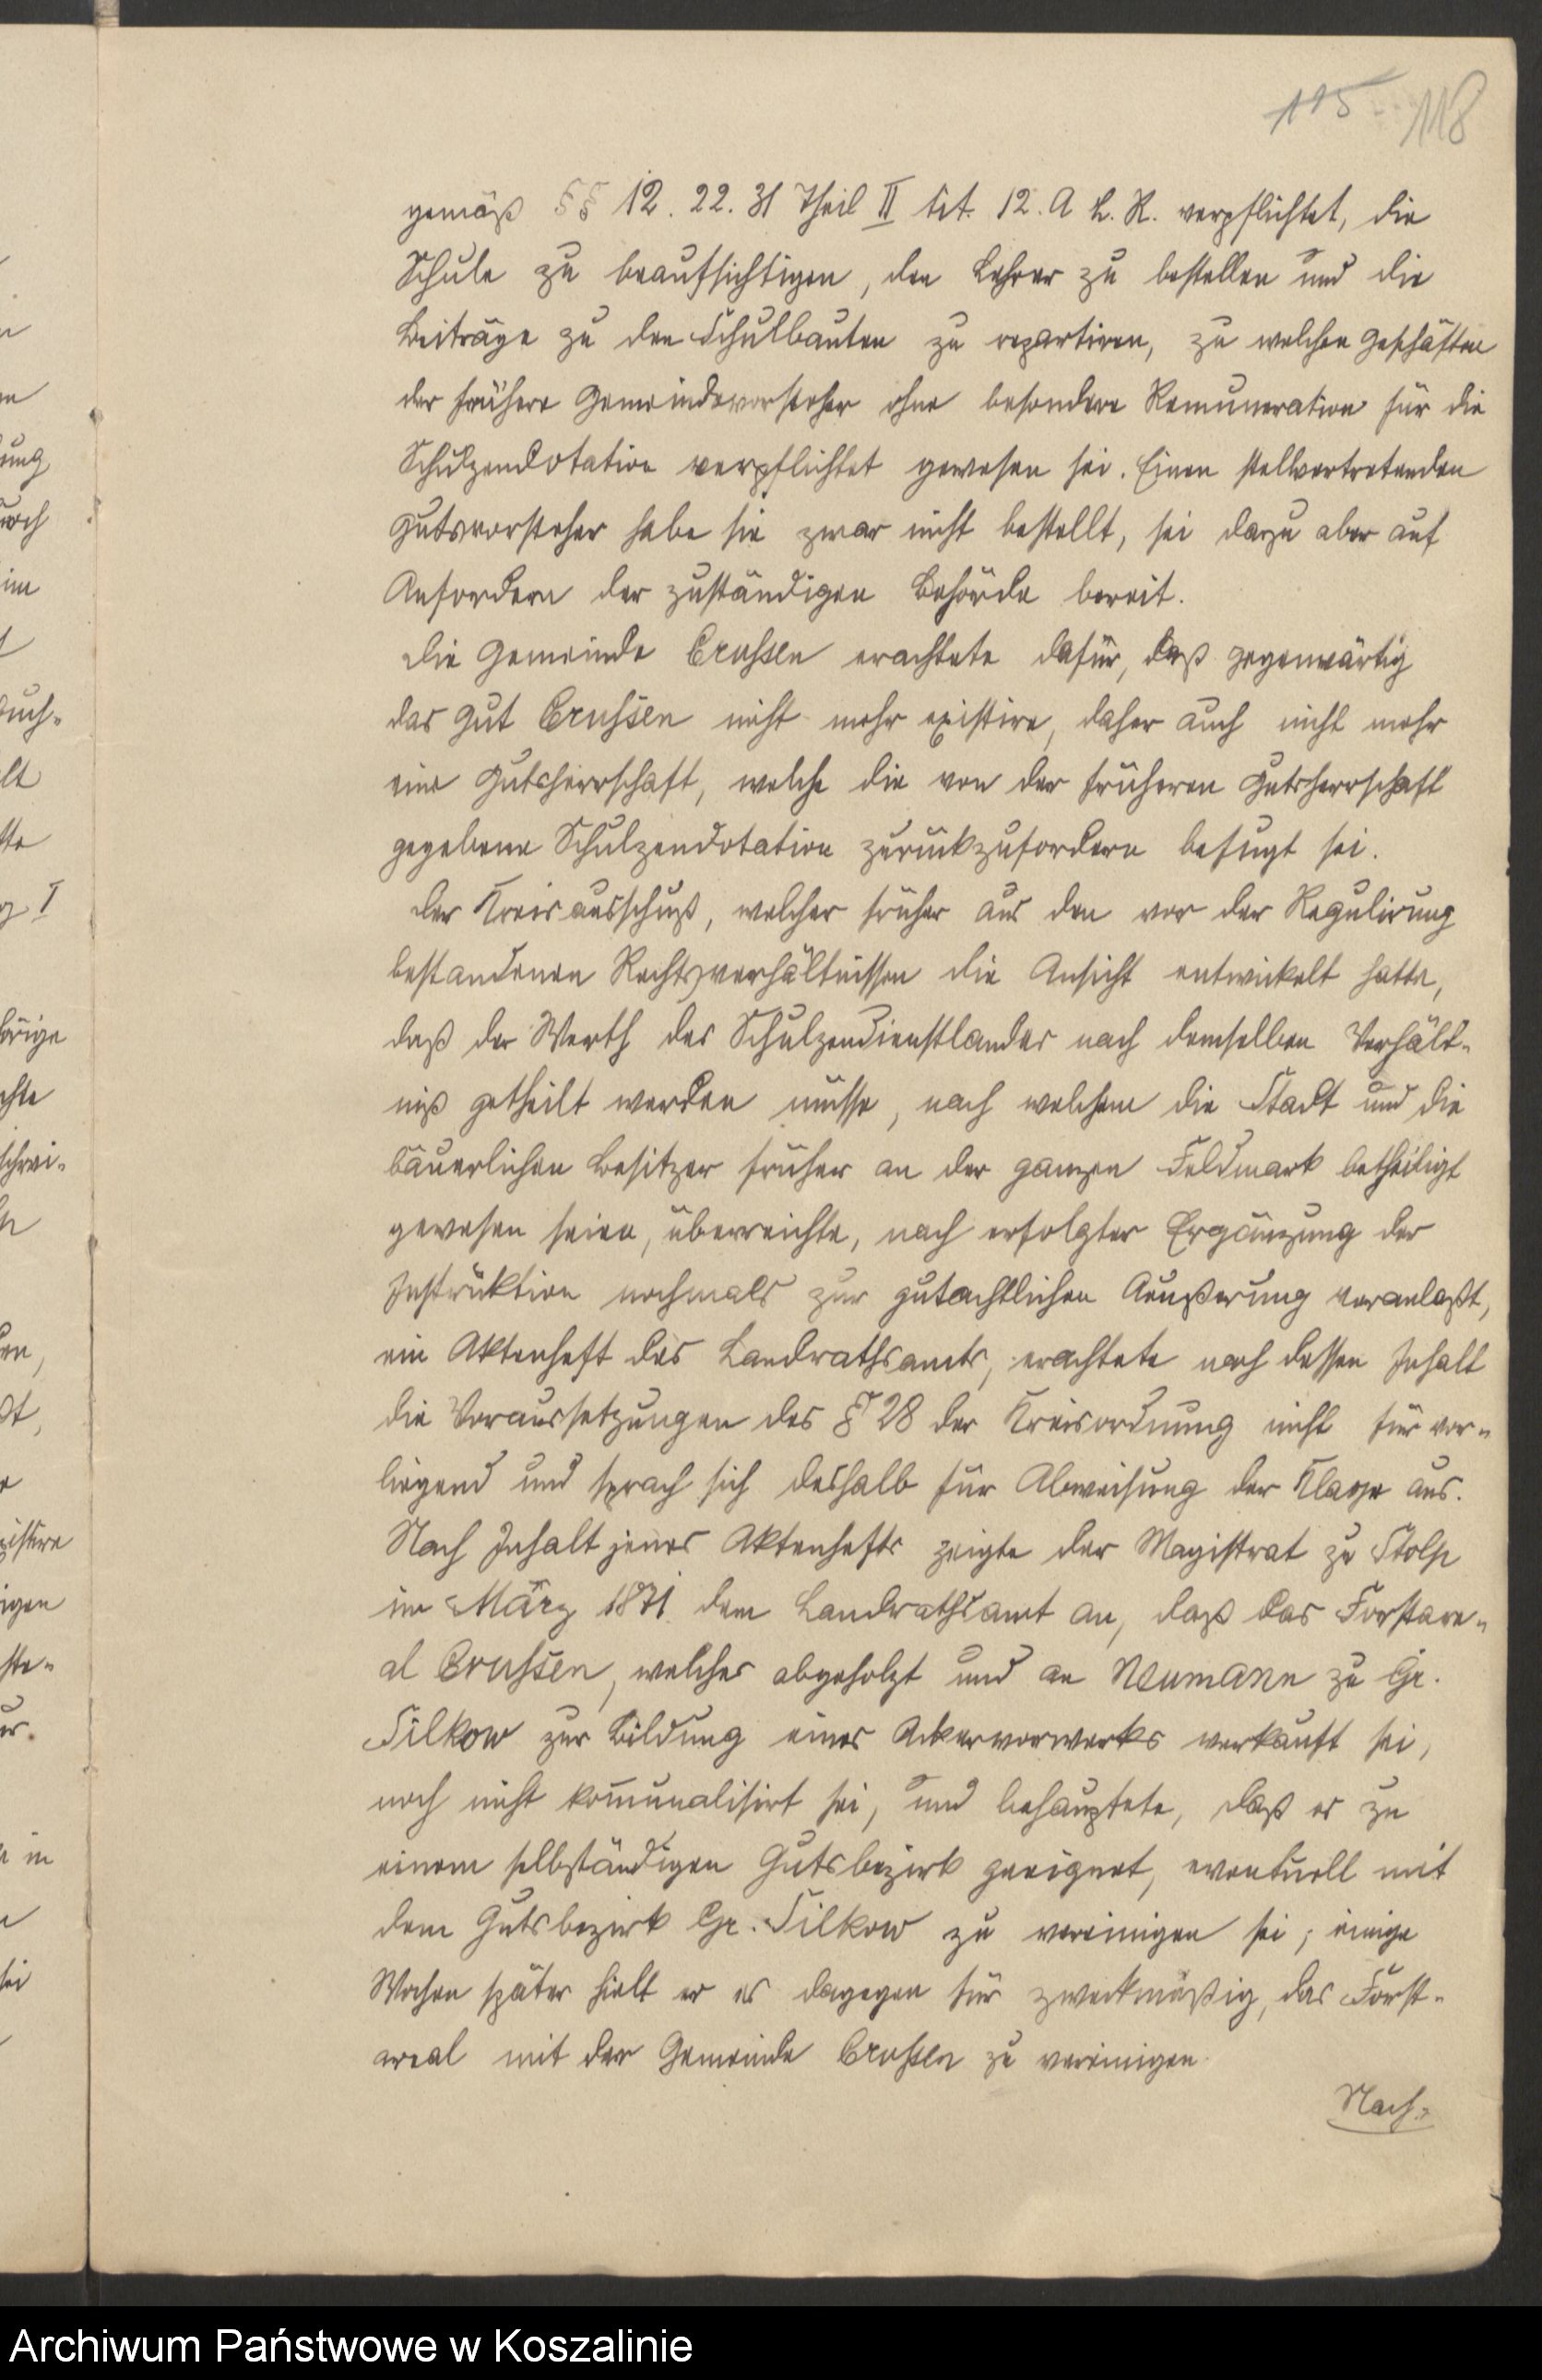 115 118
gemäß §§ 12. 22. 31 Theil II tit. 12. A L. R. verpflichtet, die
Schule zu beaufsichtigen, den Lehrer zu bestellen und die
Beiträge zu den Schulbauten zu repartiren, zu welchen Geschäften
der frühere Gemeindevorsteher ohne besondere Remuneration für die
Schulzendotation verpflichtet gewesen sei. Einen stellvertretenden
Gutsvorsteher habe sie zwar nicht bestellt, sei dazu aber auf
Anfordern der zuständigen Behörde bereit.
Die Gemeinde Crussen erachtete dafür, daß gegenwärtig
das Gut Crussen nicht mehr existire, daher auch nicht mehr
eine Gutsherrschaft, welche die von der früheren Gutsherrschaft
gegebene Schulzendotation zurückzufordern befugt sei.
Der Kreisausschuß, welcher früher aus den vor der Regulirung
bestandenen Rechtsverhältnissen die Ansicht entwickelt hatte,
daß der Werth des Schulzendienstlandes nach demselben Verhält-
niß getheilt werden müsse, nach welchem die Stadt und die
bäuerlichen Besitzer früher an der ganzen Feldmark betheiligt
gewesen seien, überreichte, nach erfolgter Ergänzung der
Instruktion nochmals zur gutachtlichen Aeußerung veranlaßt,
ein Aktenheft des Landrathsamts, erachtete nach dessen Inhalt
die Voraussetzungen des § 28 der Kreisordnung nicht für vor-
liegend und sprach sich deshalb für Abweisung der Klage aus.
Nach Inhalt jenes Aktenhefts zeigte der Magistrat zu Stolp
im März 1871 dem Landrathsamt an, daß das Forstare-
al Crussen, welches abgeholzt und an Neumann zu Gr.
Silkow zur Bildung eines Ackervorwerks verkauft sei,
noch nicht kommunalisirt sei, und behauptete, daß es zu
einem selbständigen Gutsbezirk geeignet, eventuell mit
dem Gutsbezirk Gr. Silkow zu vereinigen sei; einige
Wochen später hielt er es dagegen für zweckmäßig, das Forst-
areal mit der Gemeinde Crussen zu vereinigen.
Nach-
Archiwum Państwowe w Koszalinie